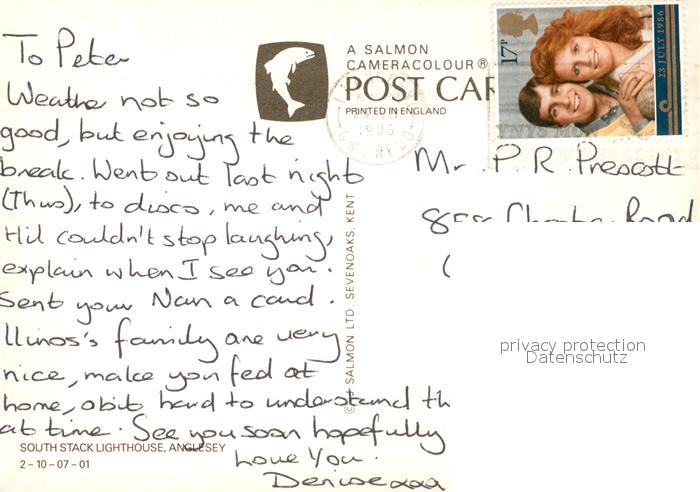 To Peter
Weather not so
good, but enjoying the
break. Went out last night
(Thurs), to disco, me and
Hil couldn't stop laughing,
explain when I see you.
Sent your Nan a card.
Llinos's family are very
nice, make you feel at
home, abit hard to understand th
at time. See you soon hopefully
Love You.
Denise xxx
SOUTH STACK LIGHTHOUSE, ANGLESEY
2-10-07-01
A SALMON
CAMERACOLOUR®
POST CAR
PRINTED IN ENGLAND
© J SALMON LTD SEVENOAKS, KENT
1986
GWYNEDD
17P
23 JULY 1986
Mr P. R. Prescott
Road
privacy protection
Datenschutz